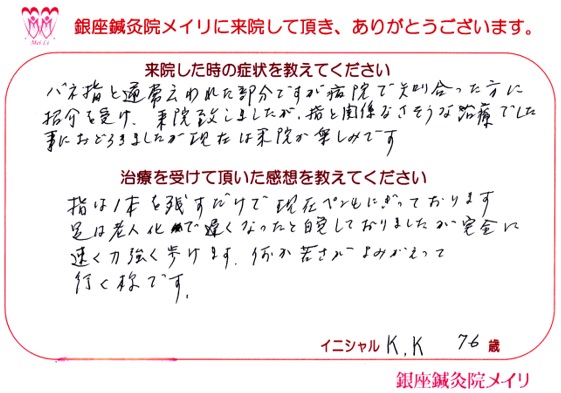 Mei Li
銀座鍼灸院メイリに来院して頂き、ありがとうございます。
来院した時の症状を教えてください
バネ指と通常云われた部分ですが病院で知り合った方に
紹介を受け、来院致しましたが、指と関係なさそうな治療でした
事におどろきましたが現在は来院が楽しみです
治療を受けて頂いた感想を教えてください
指は1本を残すだけで現在ペンもにぎっております
足は老人化で遅くなったと自覚しておりましたが完全に
速く力強く歩けます。何か若さがよみがえって
行く様です。
イニシャル K.K 76歳
銀座鍼灸院メイリ